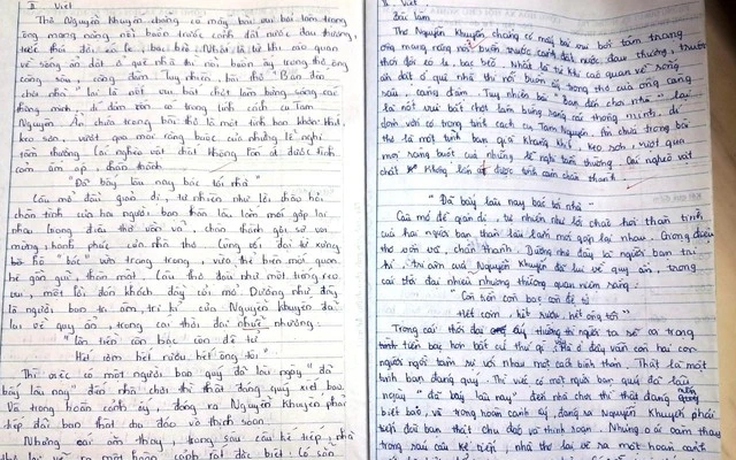 II Viết
Thơ Nguyễn Khuyến chẳng có mấy bài vui bởi tấm trong
ông mang nặng nỗi buồn trước cảnh đất nước đau thương,
thời đói có le, bạc bẽo. Nhất là từ khi cáo quan
về sống ẩn dật ở quê nhà thì nỗi buồn ấy trong thơ ông
càng sâu, càng đậm. Tuy nhiên, bài thơ "Bạn đến
chơi nhà" lại là nốt vui bất chợt làm bừng sáng cái
thông minh, dí dỏm vốn có trong tính cách cụ Tam
Nguyên. Ẩn chứa trong bài thơ là một tình bạn khăng khít,
keo sơn, vượt qua mọi ràng buộc của những lễ nghi
tầm thường. Cái nghèo vật chất không lấn át được tình
cảm ấm áp, chân thành.
"Đã bấy lâu nay bác tới nhà"
Câu mở đầu giản dị, tự nhiên như lời chào hỏi
chân tình của hai người bạn thân lâu lắm mới gặp lại
nhau. Giọng điệu thơ vồn vã, chân thành gợi sự vui
mừng, hạnh phúc của nhà thơ. Cùng với đại từ xưng
hô "bác" vừa trang trọng, vừa thể hiện mối quan
hệ gần gũi, thân mật. Câu thơ đầu như một tiếng reo
vui, một lời đón khách đầy cởi mở. Dường như đây
là người bạn tri âm, tri kỉ của Nguyễn Khuyến đã
lui về quy ẩn, trong cái thời đại nhiễu nhương:
"Còn tiền còn bạc còn đệ tử
Hết cơm hết rượu hết ông tôi"
Thì việc có một người bạn quý đã lâu ngày "đã
bấy lâu nay" đến nhà chơi thì thật đáng quý biết bao.
Và trong hoàn cảnh ấy, đáng ra Nguyễn Khuyến phải
tiếp đãi bạn thật chu đáo và thịnh soạn.
Nhưng oái oăm thay, trong sáu câu kế tiếp, nhà
thơ lại vẽ ra một hoàn cảnh rất đặc biệt:
II Viết
Bài làm
Thơ Nguyễn Khuyến chẳng có mấy bài vui bởi tấm trong
ông mang nặng nỗi buồn trước cảnh đất nước, đau thương, trước
thời đói có le, bạc bẽo. Nhất là từ khi cáo quan về sống
ẩn dật ở quê nhà thì nỗi buồn ấy trong thơ của ông càng
sâu, càng đậm. Tuy nhiên bài "Bạn đến chơi nhà" lại
là nốt vui bất chợt làm bừng sáng cái thông minh, dí
dỏm vốn có trong tính cách cụ Tam Nguyên. Ẩn chứa trong bài
thơ là một tình bạn quý khăng khít, keo sơn, vượt qua
mọi ràng buộc của những lễ nghi tầm thường. Cái nghèo vật
chất không lấn át được tình cảm chân thành.
"Đã bấy lâu nay bác tới nhà"
Câu mở đề giản dị, tự nhiên như lời chào hỏi thân tình
của hai người bạn thân lâu lắm mới gặp lại nhau. Giọng điệu
thơ vồn vã, chân thành. Dường như đây là người bạn tri
kỉ, tri âm của Nguyễn Khuyến đã lui về quy ẩn, trong
cái thời đại nhiều nhương thường quan niệm rằng:
"Còn tiền còn bạc còn đệ tử
Hết cơm, hết rượu, hết ông tôi"
Trong cái thời đại ấy, thường thì người ta sẽ coi trọng
tiền bạc hơn bất cứ thứ gì. Mà ở đây vẫn còn hai con
người ngồi tâm sự với nhau một cách bình thản. Thật là một
tình bạn đáng quý. Thì việc có một người bạn quý đã lâu
ngày "đã bấy lâu nay" đến nhà chơi thì thật đáng quý
biết bao, và trong hoàn cảnh ấy, đáng ra Nguyễn Khuyến phải
tiếp đãi bạn thật chu đáo và thịnh soạn. Nhưng oái oăm thay
trong sáu câu kế tiếp, nhà thơ lại vẽ ra một hoàn cảnh